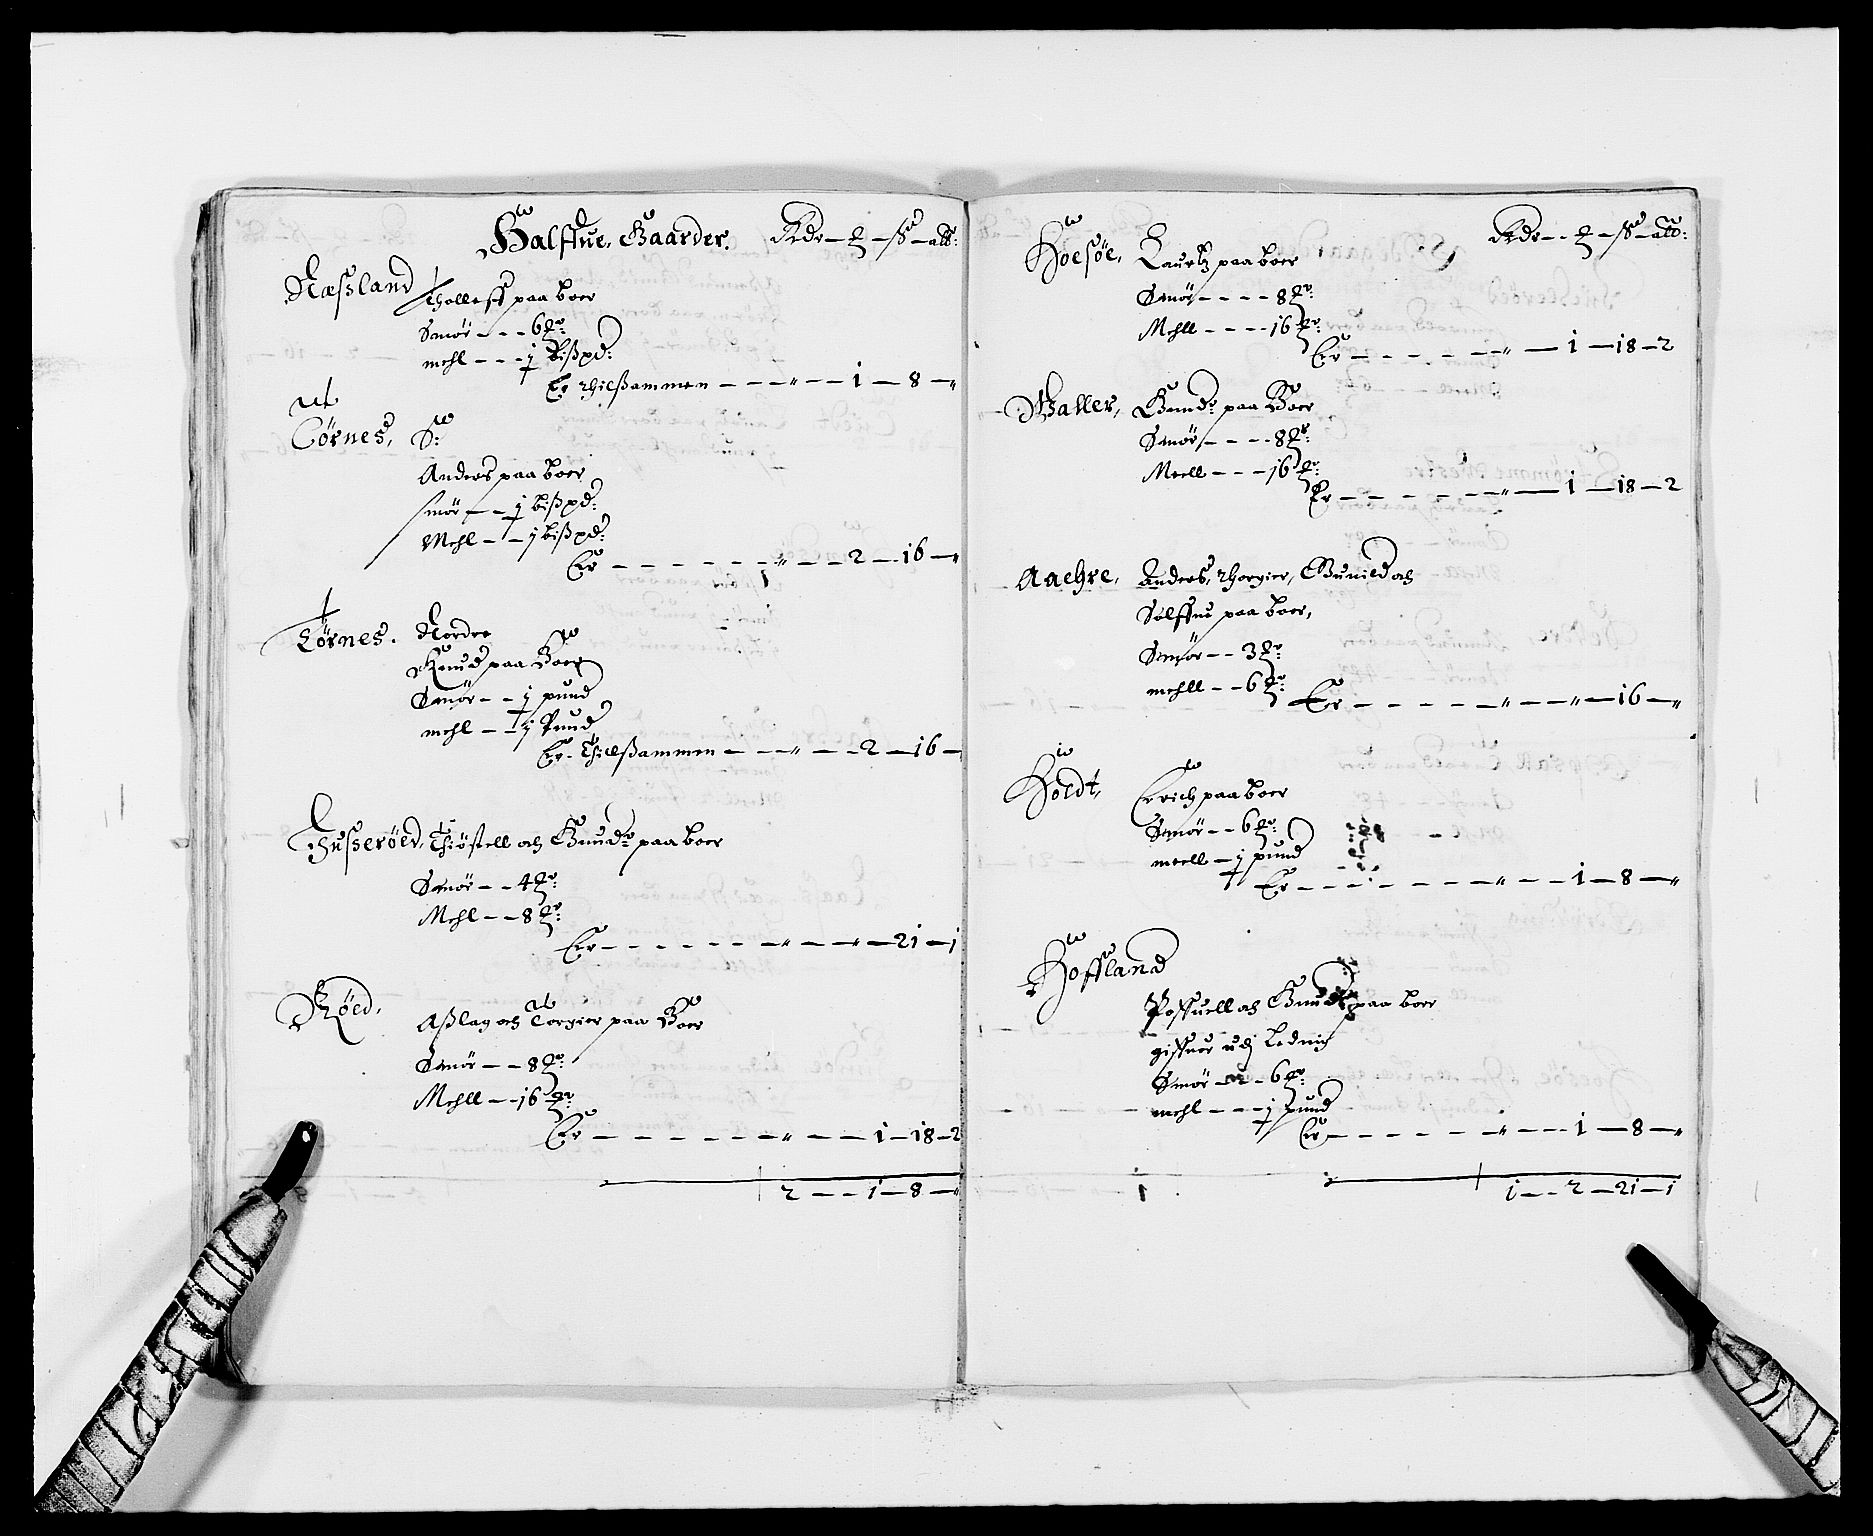 Halffue Gaarder. Rdr — ℔ — ß — alb:
Næßland Tholleff paa boer
Smør - - - 6 ℔:
mehl - - - j bißpd:
Er thilßammen - - - „ - - 1 - 8 - „
Törnes, S:
Anders paa boer
smør - - j bißpd:
Mehl - - j bißpd:
Er - - - - - - „ - - 2 - 16 - „
Törnes. Nordre
Knud paa Boer
Smør - - j pund
mehl - - j Pund
Er Thillßammen - - - „ - - 2 - 16 -
Husserøed, Thiöstell och Gund: paa boer
Smør - - 4 ℔:
Mehl - - 8 ℔:
Er - - - - - - „ - - „ - 21 - 1
Røed, Aßlag och Torgier paa Boer
Smør - - 8 ℔:
Mehll - - 16 ℔:
Er - - - - - - „ - - 1 - 18 - 2
2 - - 1 - 8 - „
Rdr - - ℔ - ß - alb:
Høesøe, Lauritz paa boer
Smør - - - - 8 ℔:
Mehll - - - - 16 ℔:
Er - - - - - „ - 1 - 18 - 2
Waller, Gund: paa Boer
Smør - - - - 8 ℔:
Meell - - - 16 ℔:
Er - - - - - „ - 1 - 18 - 2
Aaehre, Anders, Thorgier, Gunild och
Sølffue paa boer,
Smør - - 3 ℔:
mehll - - 6 ℔:
Er - - - - - „ - - „ - 16 - „
Høldt, Erich paa boer
Smør - - 6 ℔:
meell - j pund
Er - - - - - - „ - - 1 - 8 - „
Hoffland
Poffuell och Gund paa boer
giffuer udj Leding
Smør - - 6 ℔:
mehl - - - j pund
Er - - - - - „ - - 1 - 8 - „
1 - - 2 - 21 - 1